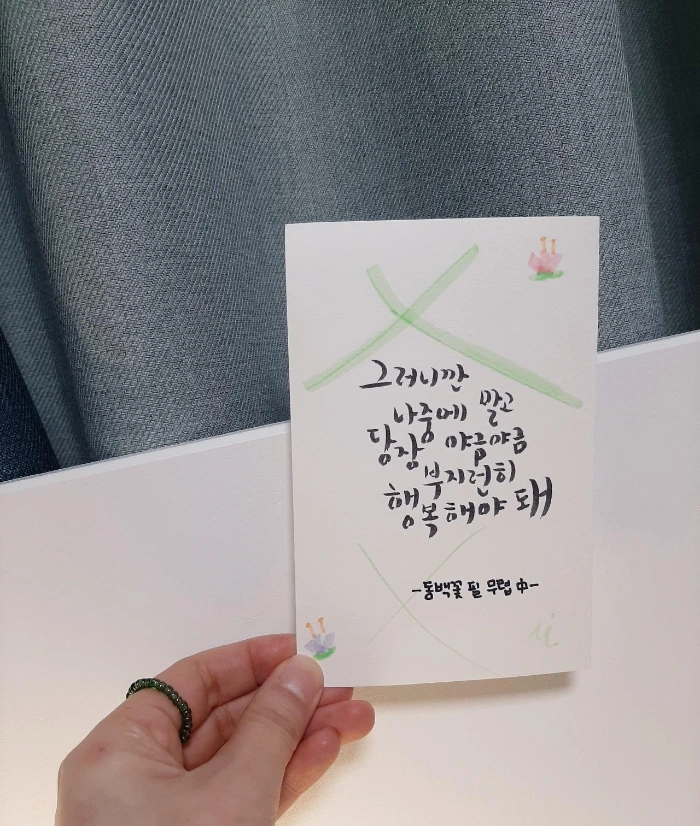 그러니깐
나중에 말고
당장 야금야금
부지런히
행복해야 돼
-동백꽃 필 무렵 中-